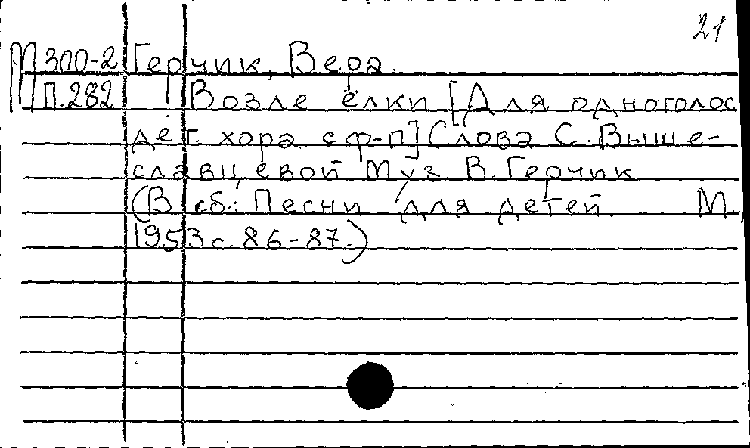 21
М 300-2 Герчик, Вера.
П.282 Возле ёлки [Для одноголос
дет. хора с ф-п] Слова С. Выше-
славцевой Муз В. Герчик
(В сб.: Песни для детей М,
1953 с. 86-87.)